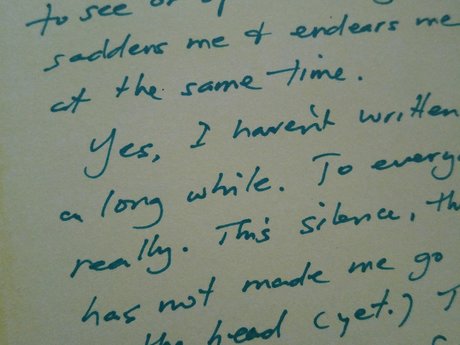 to see or
saddens me & endears me
at the same time.
Yes, I haven't written
a long while. To
really. This silence,
has not made me go
the head (yet.)